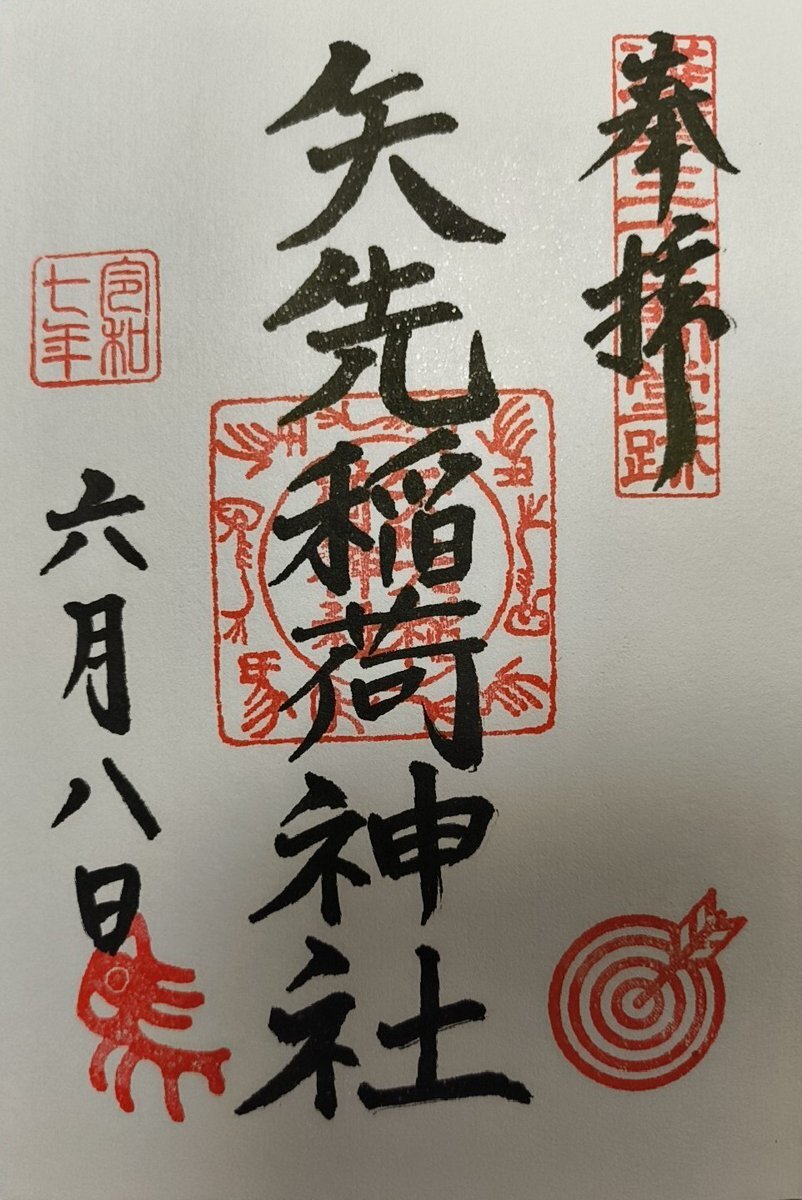 奉拝
矢先稲荷神社
令和
七年
六月八日